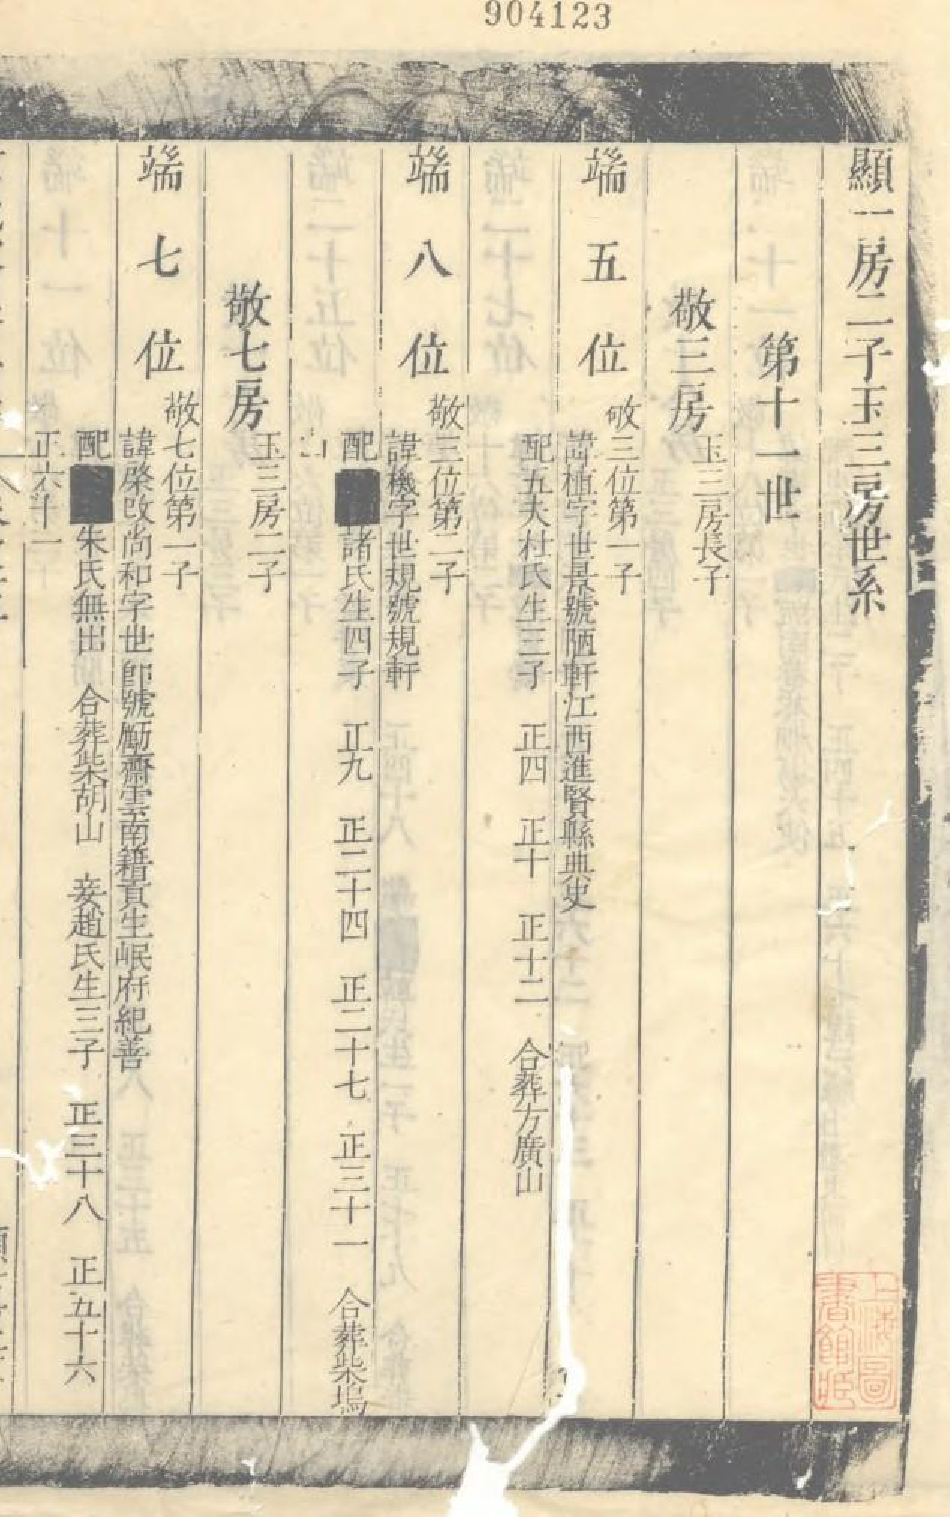 904123
顯一房二子玉三房世系
第十一世
敬三房
玉三房長子
端五位
敬三位第一子
諱植字世景號陋軒江西進賢縣典史
配五夫杜氏生三子 正四 正十 正十二 合葬方廣山
端八位
敬三位第二子
諱機字世規號規軒
配諸氏生四子 正九 正二十四 正二十七 正三十一 合葬柴塢
山
敬七房
玉三房二子
端七位
敬七位第一子
諱棨改尚和字世卽號勵齋雲南籍貢生岷府紀善
配朱氏無出 合葬柴胡山 妾趙氏生三子 正三十八 正五十六
正六十一
上海圖書館